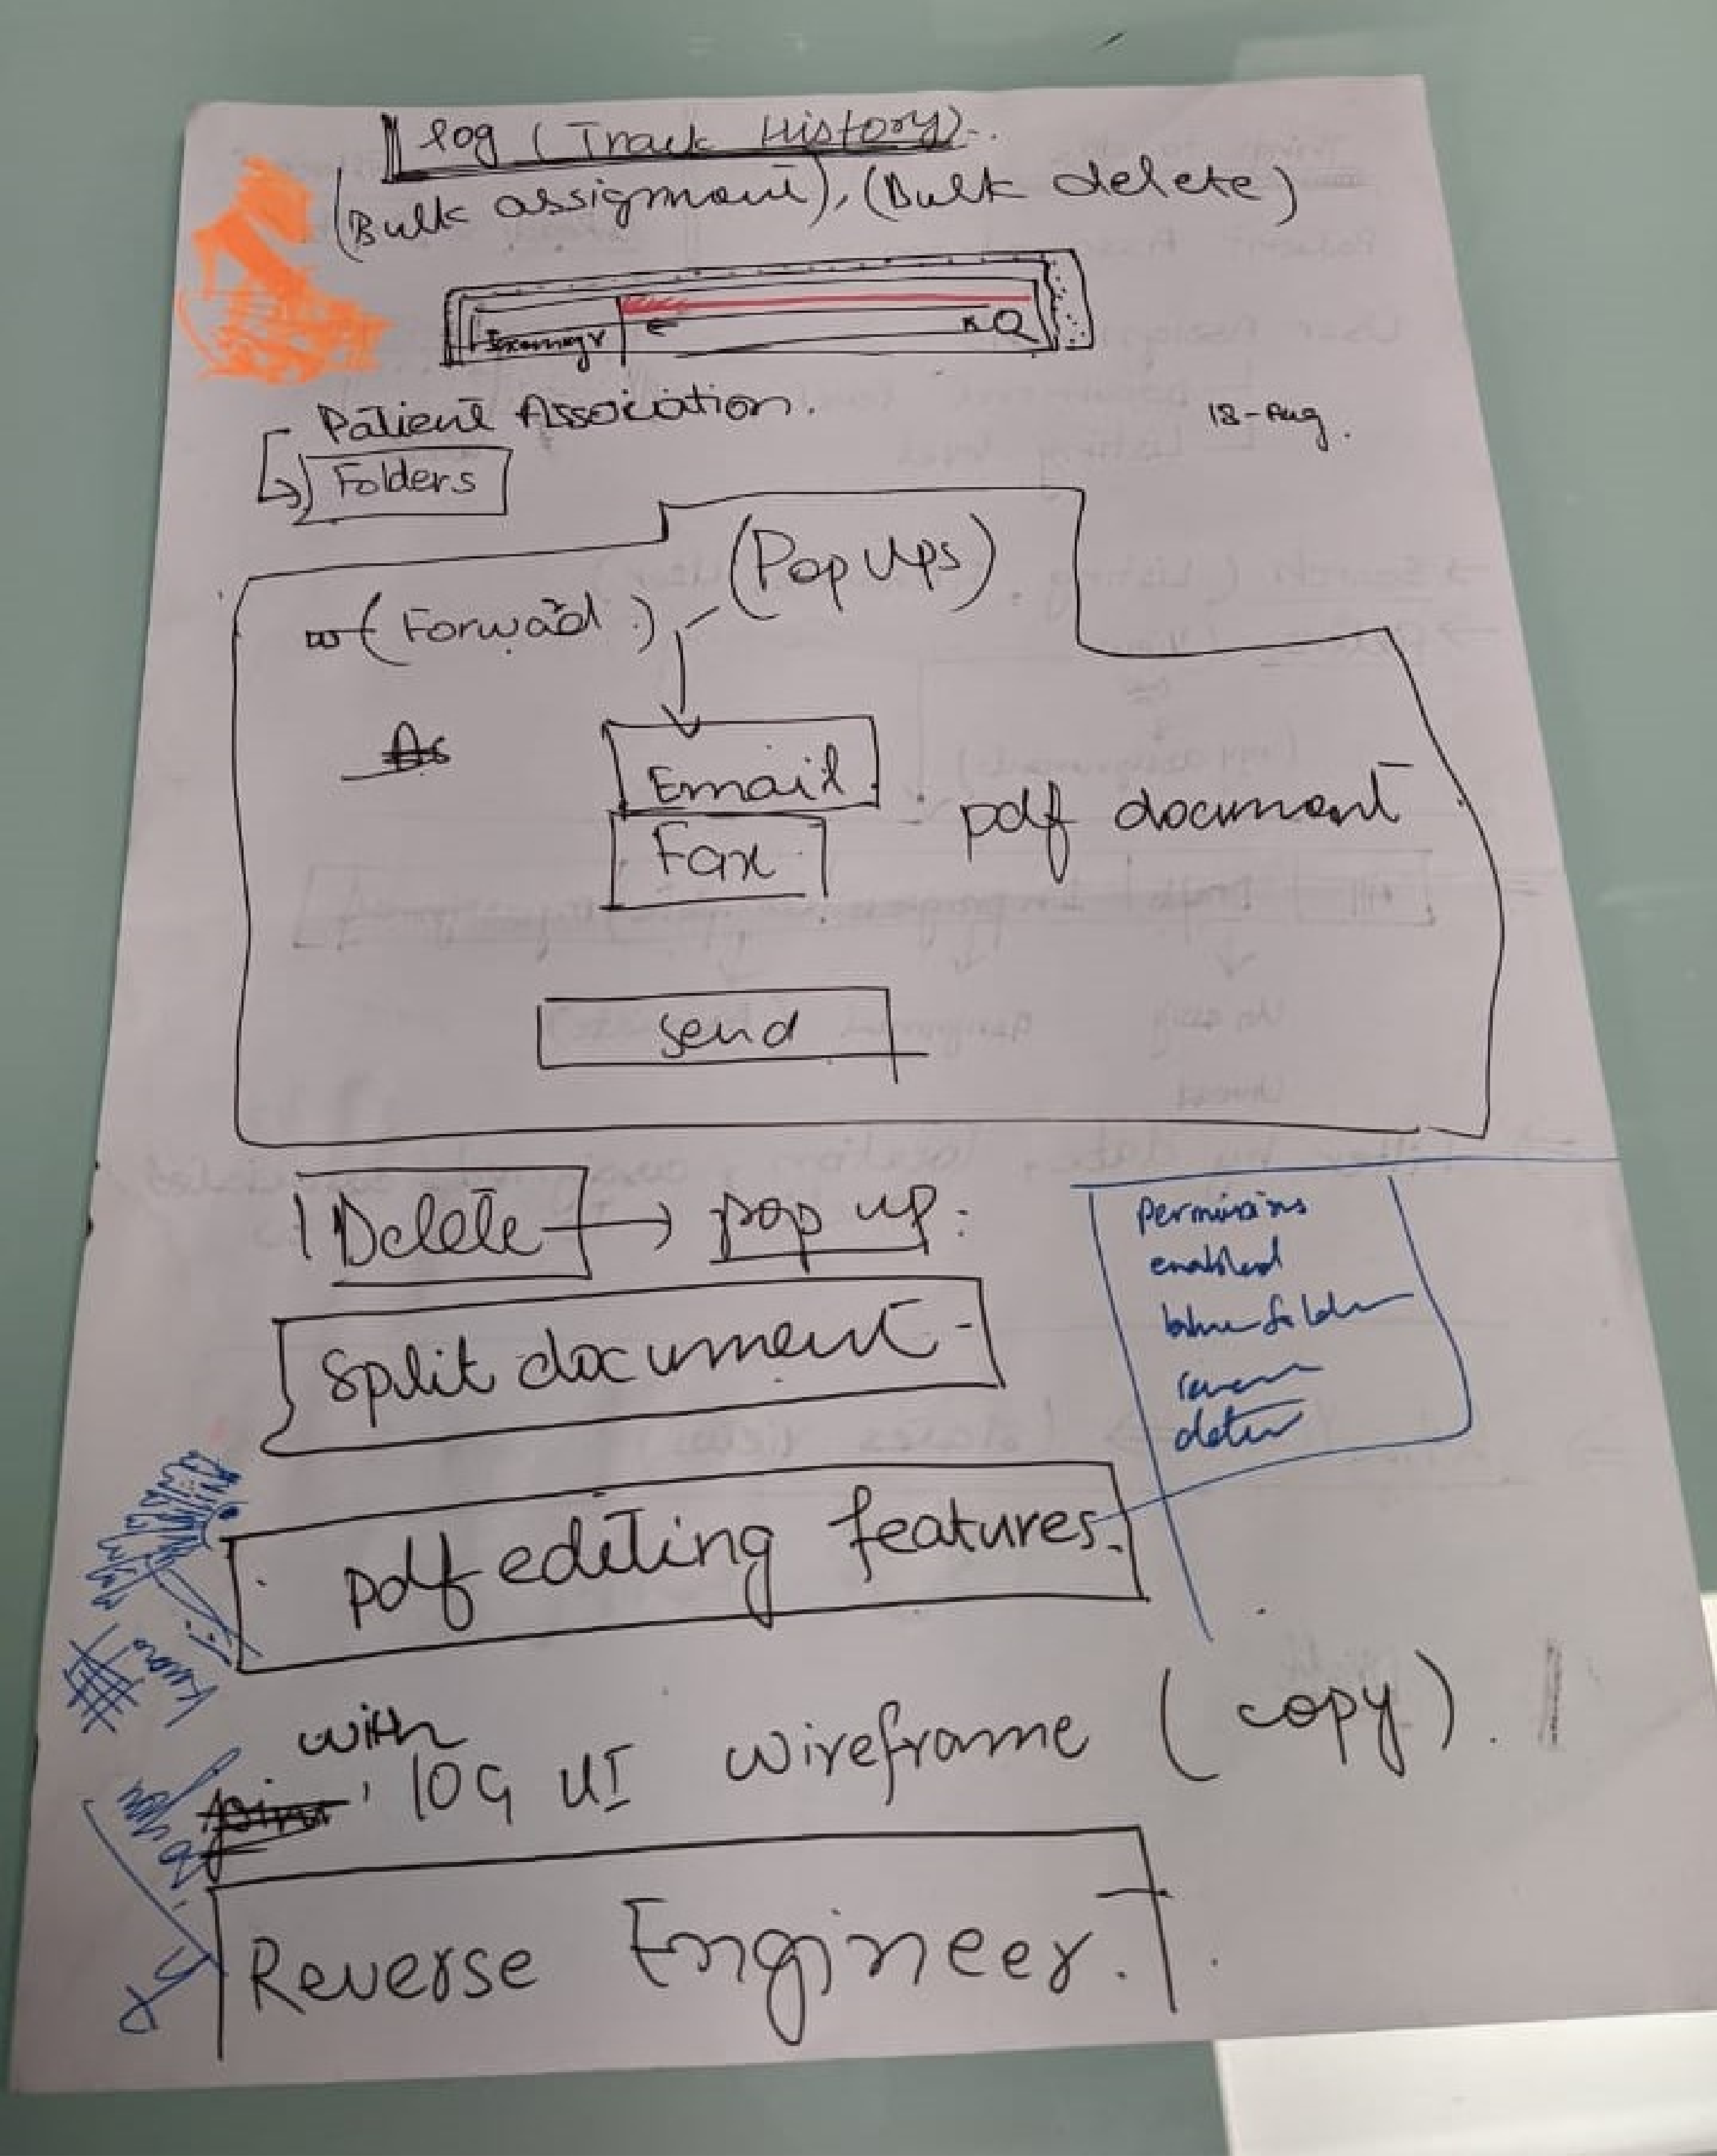 log (Track History)
(Bulk assigment), (Bulk delete)
Q
Patient Association.
18-Aug.
Folders
(Pop Ups)
(Forward)
Email
pdf document
Fax
Send
Delete → pop up:
permissions
enabled
Split document
pdf editing features.
with
log UI wireframe (copy).
Reverse Engineer.